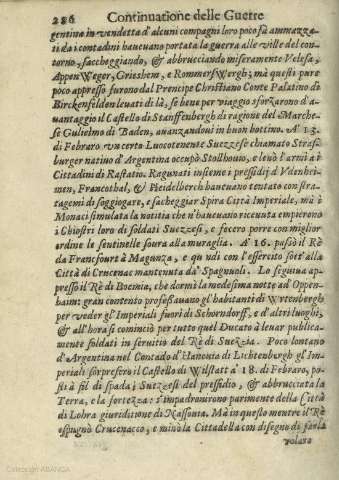 286 Continuatione delle Guerre
gentino in vendetta d'alcuni compagni loro poco fà ammazza-
ti da i contadini haueuano portata la guerra alle ville del con-
torno, saccheggiando, & abbrucciando miseramente Velesa,
AppenWeger, Griesheim, e RommersWergh; mà questi pure
poco appresso furono dal Prencipe Christiano Conte Palatino di
Birckenfelden leuati di là, se bene per viaggio sforzarono d'a-
uantaggio il Castello di Stanffenbergh di ragione del Marche-
se Gulielmo di Baden, auanzandoui in buon bottino. A' 13.
di Febraro vn certo Luocotenente Suezzese chiamato Stras-
burger natiuo d'Argentina occupò Stolhouio, e leuò l'armi à i
Cittadini di Rastatio. Ragunati insieme i presidij d'Vdenhei-
men, Francothal, & Heidelberch haueuano tentato con stra-
tagemi di soggiogare, e saccheggiar Spira Città Imperiale, mà i
Monaci simulata la notitia che n'haueuano riceuuta empierono
i Chiostri loro di soldati Suezzesi, e fecero porre con miglior
ordine le sentinelle soura alla muraglia. A' 16. passò il Rè
da Francfourt à Magonza, e quindi con l'essercito sott'alla
Città di Crucenac mantenuta da' Spagnuoli. Lo seguiua ap-
presso il Rè di Boemia, che dormì la medesima notte ad Oppen-
haim: gran contento professauano gl'habitanti di Wrtenbergh
per veder gl'Imperiali fuori di Schorndorff, e d'altri luoghi,
& all'hora si cominciò per tutto quel Ducato à leuar publica-
mente soldati in seruitio del Rè di Suezia. Poco lontano
d'Argentina nel Contado d'Hanouia di Lichtenburgh gl'Im-
periali sorpresero il Castello di Wilstatt a' 18. di Febraro, po-
sti à fil di spada i Suezzesi del presidio, & abbrucciata la
Terra, e la fortezza: s'impadronirono parimente della Città
di Lohra giuriditione di Nassouia. Mà in questo mentre il Rè
espugnò Crucenacco, e minò la Cittadella con disegno di farla
volare